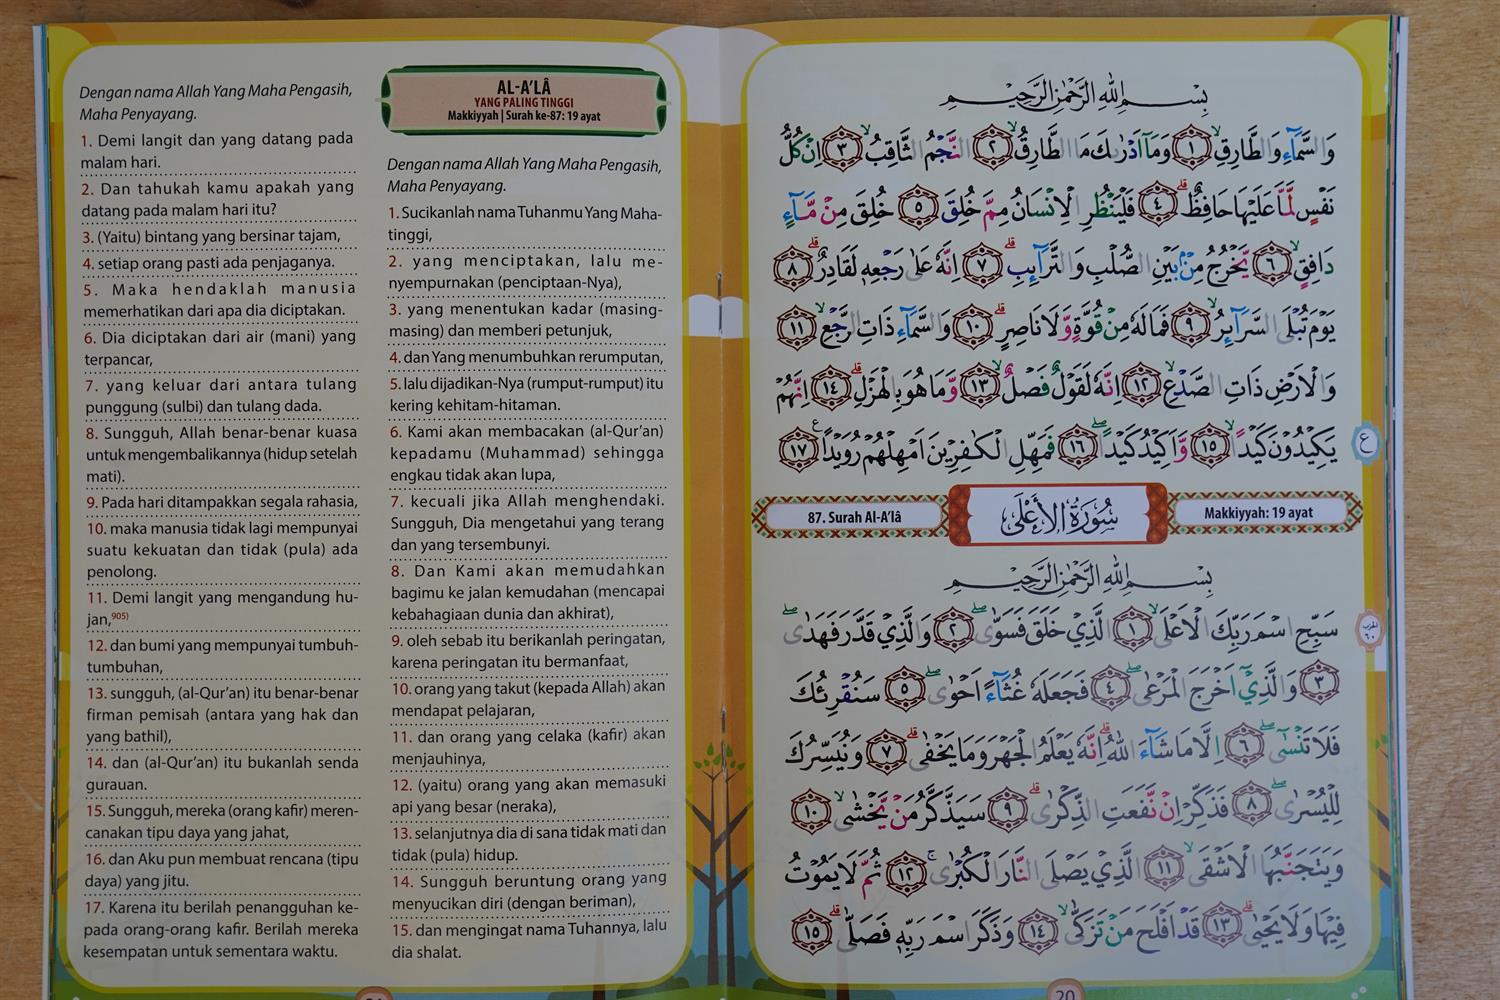 Dengan nama Allah Yang Maha Pengasih,
Maha Penyayang.
1. Demi langit dan yang datang pada
malam hari.
2. Dan tahukah kamu apakah yang
datang pada malam hari itu?
3. (Yaitu) bintang yang bersinar tajam,
4. setiap orang pasti ada penjaganya.
5. Maka hendaklah manusia
memerhatikan dari apa dia diciptakan.
6. Dia diciptakan dari air (mani) yang
terpancar,
7. yang keluar dari antara tulang
punggung (sulbi) dan tulang dada.
8. Sungguh, Allah benar-benar kuasa
untuk mengembalikannya (hidup setelah
mati).
9. Pada hari ditampakkan segala rahasia,
10. maka manusia tidak lagi mempunyai
suatu kekuatan dan tidak (pula) ada
penolong.
11. Demi langit yang mengandung hu-
jan,905)
12. dan bumi yang mempunyai tumbuh-
tumbuhan,
13. sungguh, (al-Qur'an) itu benar-benar
firman pemisah (antara yang hak dan
yang bathil),
14. dan (al-Qur'an) itu bukanlah senda
gurauan.
15. Sungguh, mereka (orang kafir) meren-
canakan tipu daya yang jahat,
16. dan Aku pun membuat rencana (tipu
daya) yang jitu.
17. Karena itu berilah penangguhan ke-
pada orang-orang kafir. Berilah mereka
kesempatan untuk sementara waktu.
AL-A'LÂ
YANG PALING TINGGI
Makkiyyah | Surah ke-87: 19 ayat
Dengan nama Allah Yang Maha Pengasih,
Maha Penyayang.
1. Sucikanlah nama Tuhanmu Yang Maha-
tinggi,
2. yang menciptakan, lalu me-
nyempurnakan (penciptaan-Nya),
3. yang menentukan kadar (masing-
masing) dan memberi petunjuk,
4. dan Yang menumbuhkan rerumputan,
5. lalu dijadikan-Nya (rumput-rumput) itu
kering kehitam-hitaman.
6. Kami akan membacakan (al-Qur'an)
kepadamu (Muhammad) sehingga
engkau tidak akan lupa,
7. kecuali jika Allah menghendaki.
Sungguh, Dia mengetahui yang terang
dan yang tersembunyi.
8. Dan Kami akan memudahkan
bagimu ke jalan kemudahan (mencapai
kebahagiaan dunia dan akhirat),
9. oleh sebab itu berikanlah peringatan,
karena peringatan itu bermanfaat,
10. orang yang takut (kepada Allah) akan
mendapat pelajaran,
11. dan orang yang celaka (kafir) akan
menjauhinya,
12. (yaitu) orang yang akan memasuki
api yang besar (neraka),
13. selanjutnya dia di sana tidak mati dan
tidak (pula) hidup.
14. Sungguh beruntung orang yang
menyucikan diri (dengan beriman),
15. dan mengingat nama Tuhannya, lalu
dia shalat.
بِسْمِ اللهِ الرَّحْمٰنِ الرَّحِيْمِ
وَالسَّمَاۤءِ وَالطَّارِقِۙ ١ وَمَآ اَدْرٰىكَ مَا الطَّارِقُۙ ٢ النَّجْمُ الثَّاقِبُۙ ٣ اِنْ كُلُّ
نَفْسٍ لَّمَّا عَلَيْهَا حَافِظٌۗ ٤ فَلْيَنْظُرِ الْاِنْسَانُ مِمَّ خُلِقَ ٥ خُلِقَ مِنْ مَّاۤءٍ
دَافِقٍۙ ٦ يَّخْرُجُ مِنْۢ بَيْنِ الصُّلْبِ وَالتَّرَاۤىِٕبِۗ ٧ اِنَّهٗ عَلٰى رَجْعِهٖ لَقَادِرٌۗ ٨
يَوْمَ تُبْلَى السَّرَاۤىِٕرُۙ ٩ فَمَا لَهٗ مِنْ قُوَّةٍ وَّلَا نَاصِرٍۗ ١٠ وَالسَّمَاۤءِ ذَاتِ الرَّجْعِۙ ١١
وَالْاَرْضِ ذَاتِ الصَّدْعِۙ ١٢ اِنَّهٗ لَقَوْلٌ فَصْلٌۙ ١٣ وَّمَا هُوَ بِالْهَزْلِۗ ١٤ اِنَّهُمْ
يَكِيْدُوْنَ كَيْدًاۙ ١٥ وَّاَكِيْدُ كَيْدًاۖ ١٦ فَمَهِّلِ الْكٰفِرِيْنَ اَمْهِلْهُمْ رُوَيْدًا ࣖ ١٧
ع
87. Surah Al-A'lâ
سُوْرَةُ الْأَعْلَى
Makkiyyah: 19 ayat
بِسْمِ اللهِ الرَّحْمٰنِ الرَّحِيْمِ
سَبِّحِ اسْمَ رَبِّكَ الْاَعْلَىۙ ١ الَّذِيْ خَلَقَ فَسَوّٰىۖ ٢ وَالَّذِيْ قَدَّرَ فَهَدٰىۖ
الحزب ٦٠
٣ وَالَّذِيْٓ اَخْرَجَ الْمَرْعٰىۖ ٤ فَجَعَلَهٗ غُثَاۤءً اَحْوٰىۖ ٥ سَنُقْرِئُكَ
فَلَا تَنْسٰىٓۖ ٦ اِلَّا مَا شَاۤءَ اللّٰهُۗ اِنَّهٗ يَعْلَمُ الْجَهْرَ وَمَا يَخْفٰىۗ ٧ وَنُيَسِّرُكَ
لِلْيُسْرٰىۖ ٨ فَذَكِّرْ اِنْ نَّفَعَتِ الذِّكْرٰىۗ ٩ سَيَذَّكَّرُ مَنْ يَّخْشٰىۙ ١٠
وَيَتَجَنَّبُهَا الْاَشْقَىۙ ١١ الَّذِيْ يَصْلَى النَّارَ الْكُبْرٰىۚ ١٢ ثُمَّ لَا يَمُوْتُ
فِيْهَا وَلَا يَحْيٰىۗ ١٣ قَدْ اَفْلَحَ مَنْ تَزَكّٰىۙ ١٤ وَذَكَرَ اسْمَ رَبِّهٖ فَصَلّٰىۗ ١٥
20